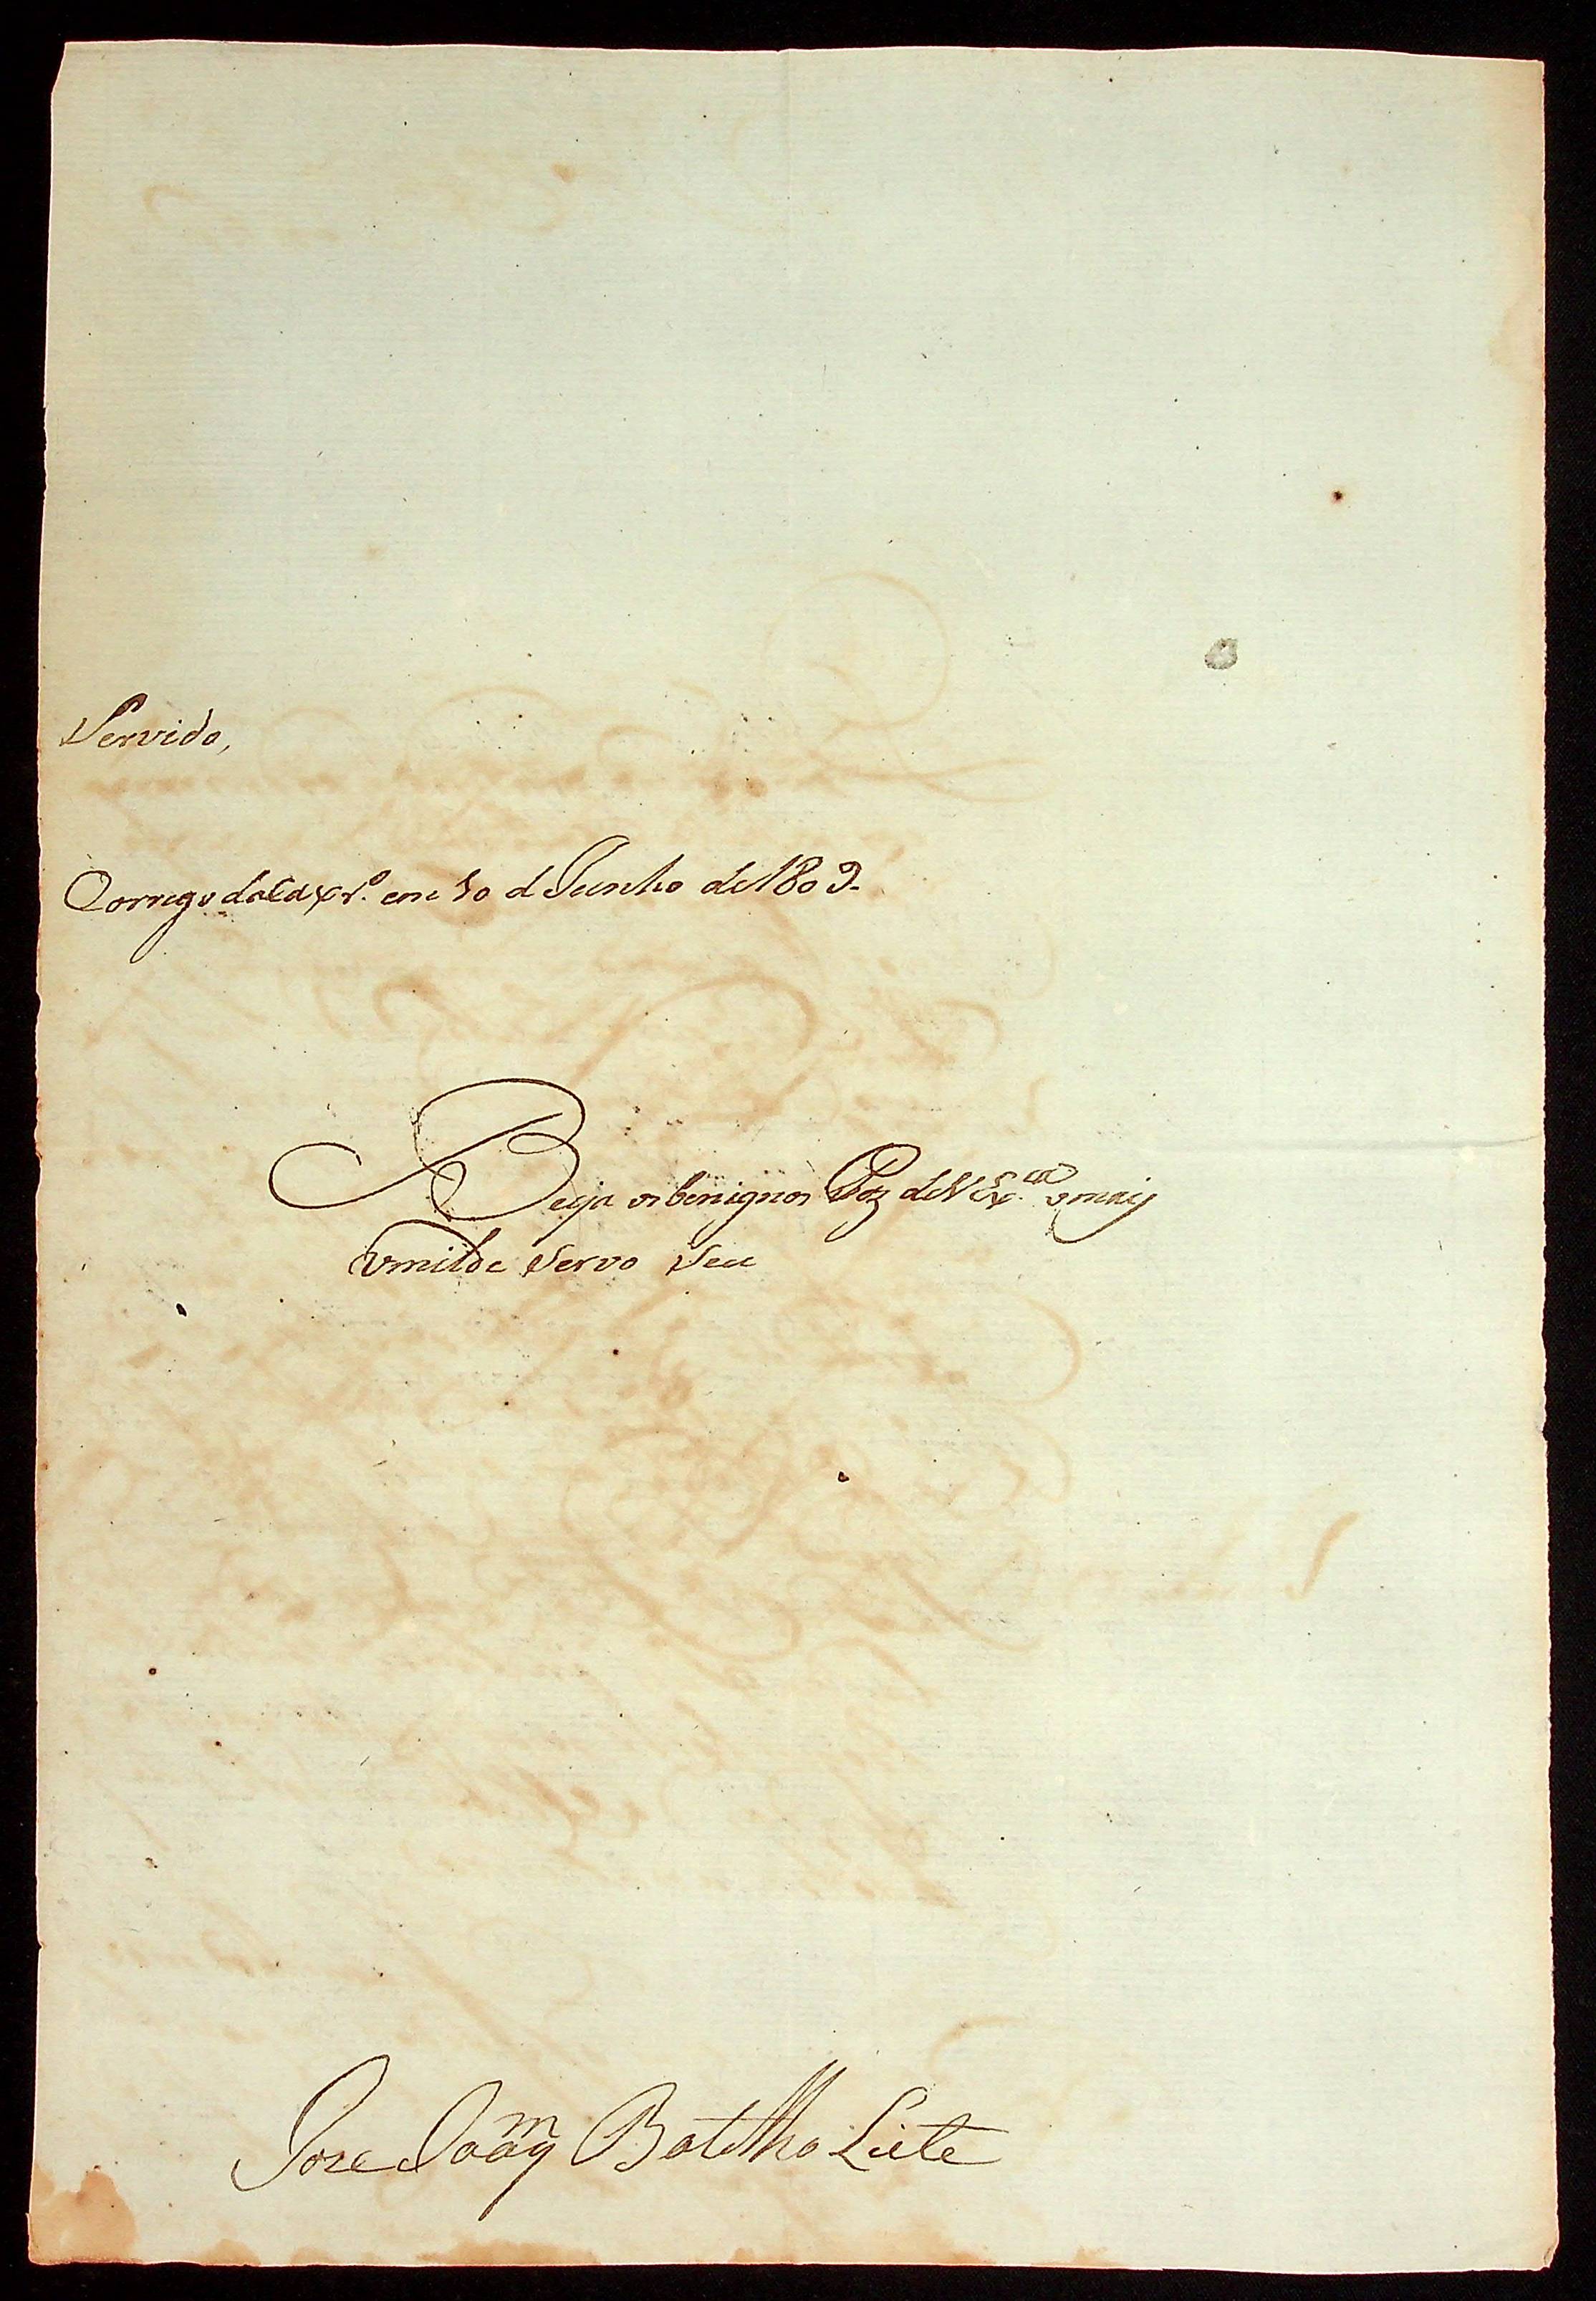 Servido,
Corrego da Caxr.º em 10 d Junho de 1809.
Beija os benignos Pez de V Ex.ᶜⁱᵃ o maiz
Vmilde Servo Seu
Joze Joaqᵐ Botelho Leite